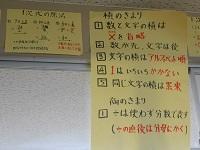 1次式の加法
積のきまり
1 数と文字の積は
×を省略
2 数が先、文字は後
3 文字の積はアルファベット順
4 1はいちいちかかない
5 同じ文字の積は累乗
商のきまり
1 ÷は使わず分数で表す
(÷の直後は分母にかく)